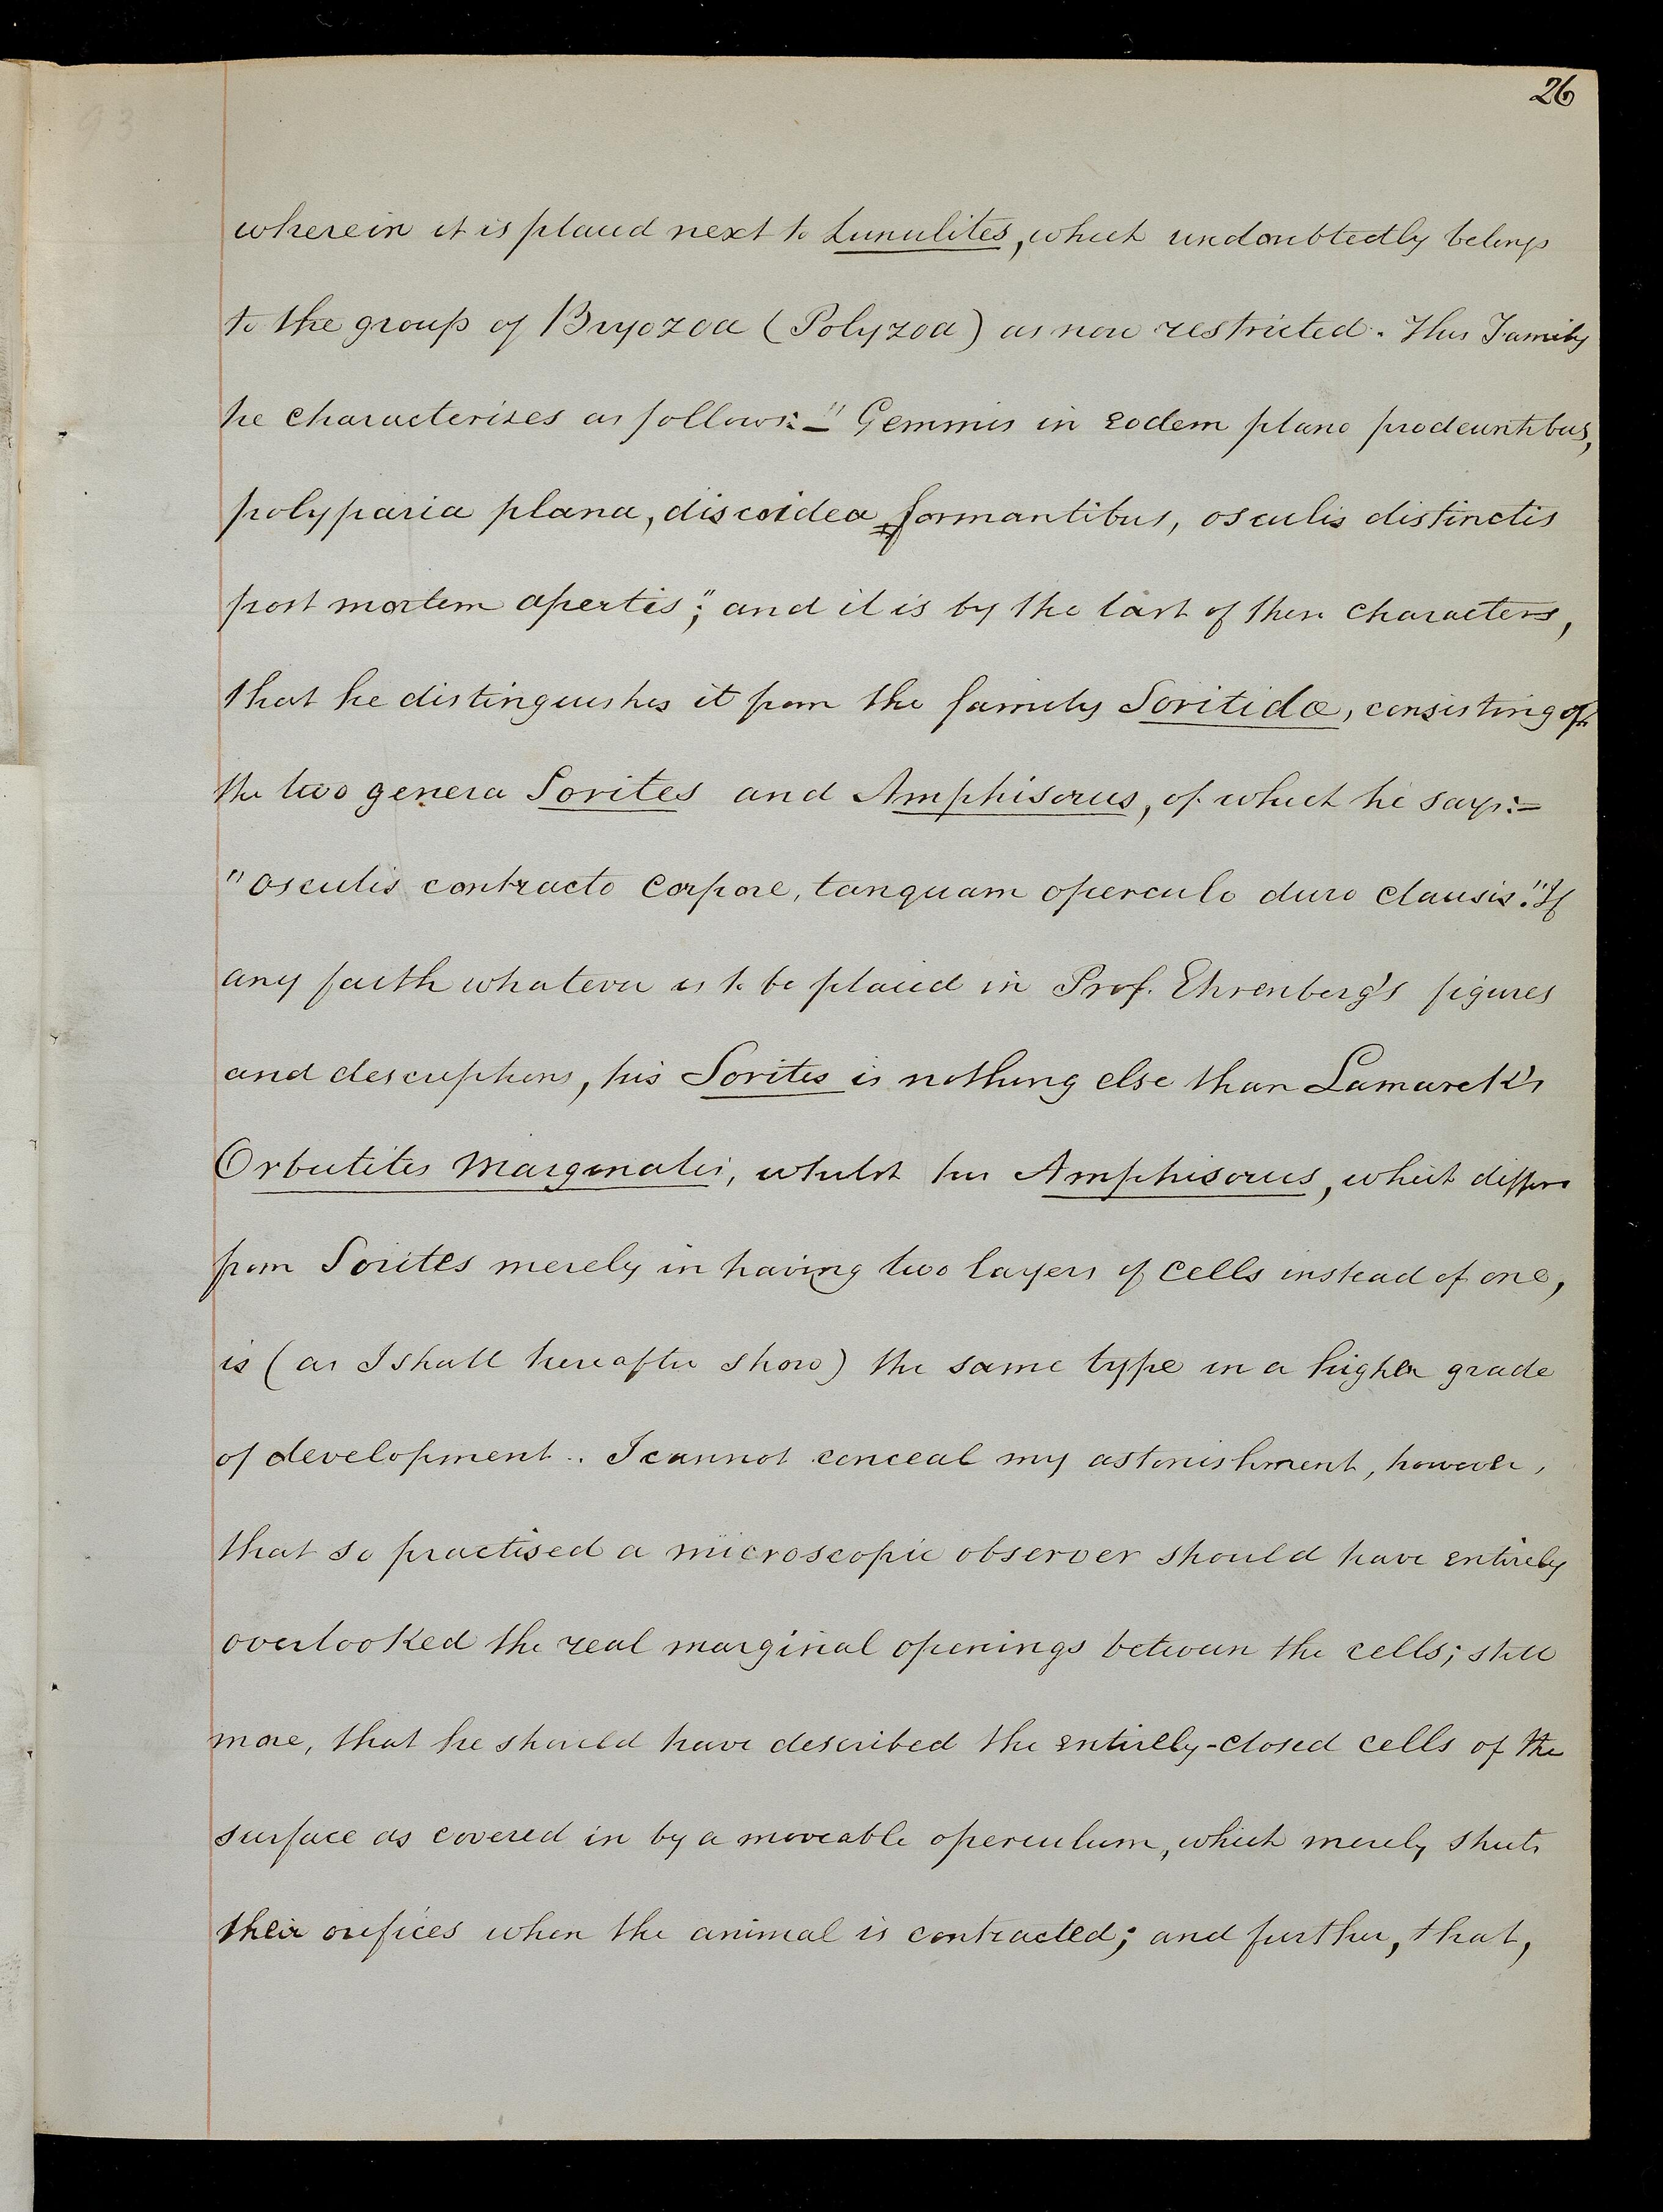 26
wherein it is placed next to Lunulites, which undoubtedly belongs
to the group of Bryozoa (Polyzoa) as now restricted. This Family
he characterizes as follows:— "Gemmis in eodem plano prodeuntibus,
polyparia plana, discoidea formantibus, osculis distinctis
post mortem apertis;" and it is by the last of these characters,
that he distinguishes it from the family Soritidæ, consisting of
the two genera Sorites and Amphisorus, of which he says:—
"Osculis contracto corpore, tanquam operculo duro clausis." If
any faith whatever is to be placed in Prof. Ehrenberg's figures
and descriptions, his Sorites is nothing else than Lamarck's
Orbutites Marginalis, whilst his Amphisorus, which differs
from Sorites merely in having two layers of cells instead of one,
is (as I shall hereafter show) the same type in a higher grade
of development. I cannot conceal my astonishment, however,
that so practised a microscopic observer should have entirely
overlooked the real marginal openings between the cells; still
more, that he should have described the entirely-closed cells of the
surface as covered in by a moveable operculum, which merely shuts
their orifices when the animal is contracted; and further, that,